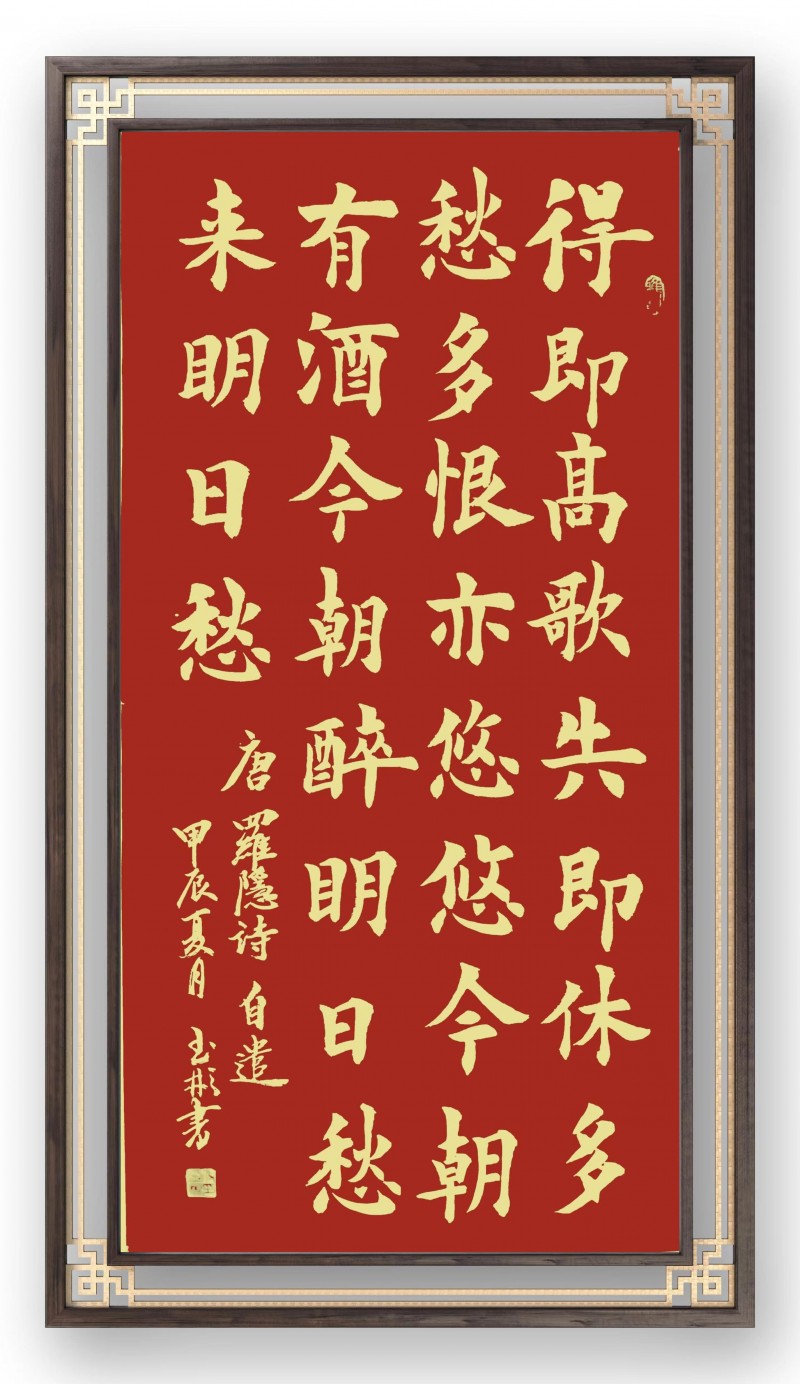 得即髙歌失即休多
愁多恨亦悠悠今朝
有酒今朝醉明日愁
来明日愁
唐羅隱诗 自遣
甲辰夏月 玉彬書